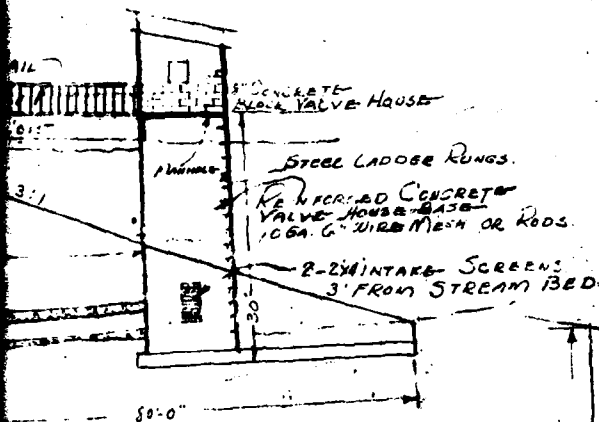 AIL
8" CONCRETE
BLOCK VALVE HOUSE
MANHOLE
STEEL LADDER RUNGS.
3:1
REINFORCED CONCRETE
VALVE HOUSE BASE
10 GA. 6" WIRE MESH OR RODS.
2-2'X4' INTAKE SCREENS
3' FROM STREAM BED
30'
80'-0"